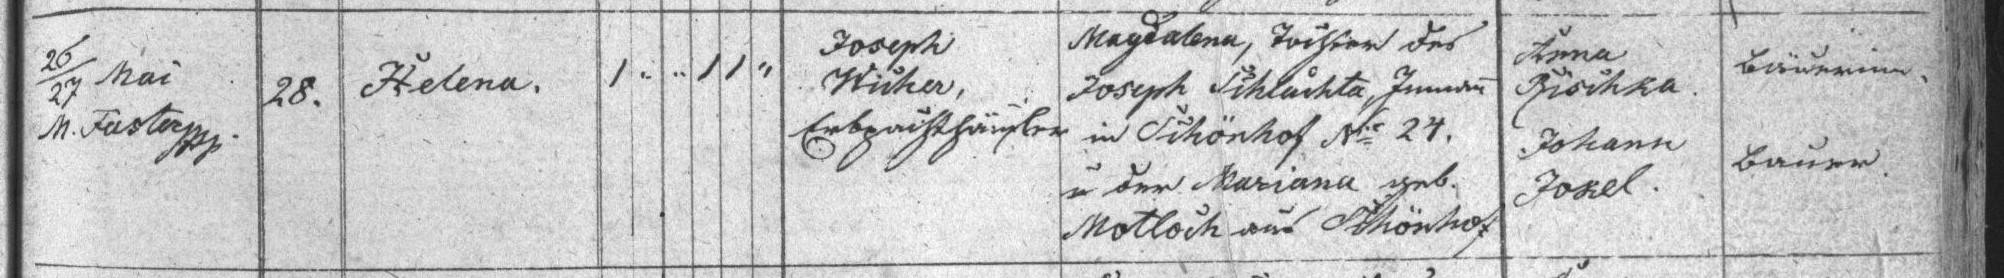 26/27 Mai
M. Fuster pp.
28.
Helena.
1 " " 1 1 "
Joseph
Wicher,
Erbpachthäusler
Magdalena, Tochter des
Joseph Schlachta, Inmann
in Schönhof No 24.
u der Mariana geb.
Motloch aus Schönhof
Anna
Bischka.
Bäuerinn.
Johann
Jokel.
Bauer.